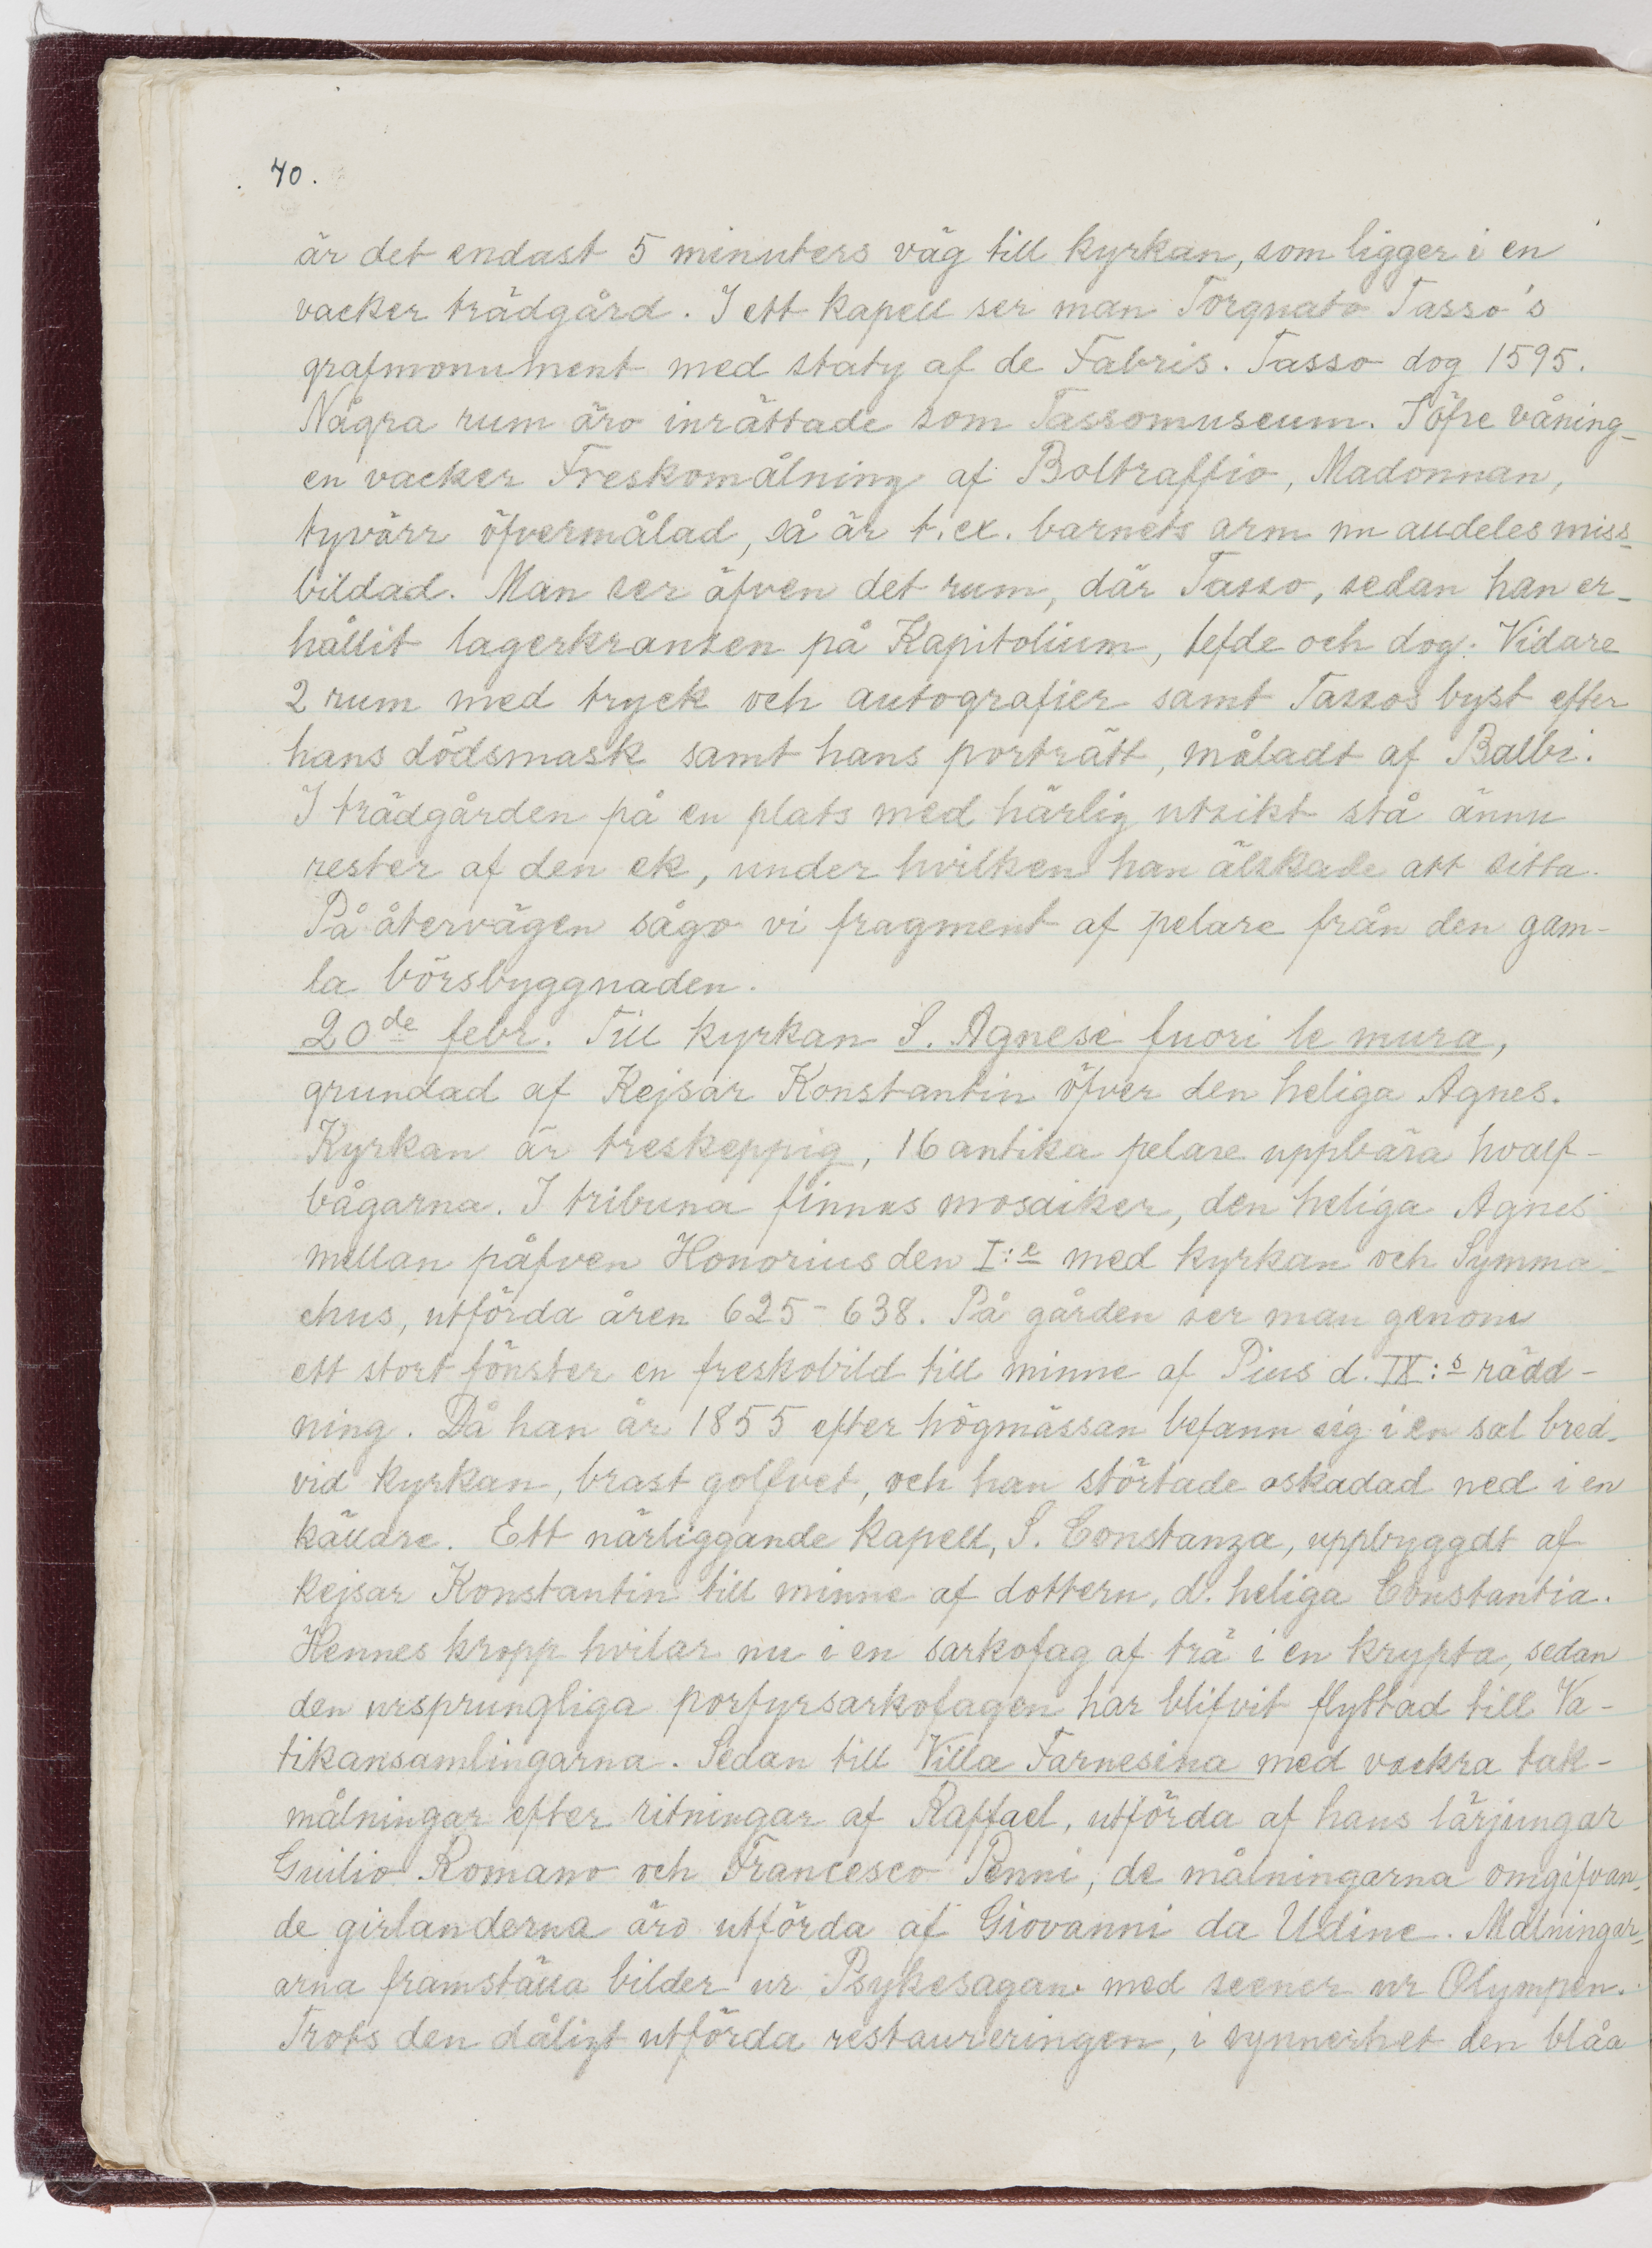 70.
är det endast 5 minuters väg till kyrkan, som ligger i en
vacker trädgård. I ett kapell ser man Torquato Tasso's
grafmonument med staty af de Fabris. Tasso dog 1595.
Några rum äro inrättade som Tassomuseum. I öfre våning-
en vacker Freskomålning af Boltraffio, Madonnan,
tyvärr öfvermålad, så är t.ex. barnets arm nu alldeles miss-
bildad. Man ser äfven det rum, där Tasso, sedan han er-
hållit lagerkransen på Kapitolium, lefde och dog. Vidare
2 rum med tryck och autografier samt Tassos byst efter
hans dödsmask samt hans porträtt, måladt af Balbi.
I trädgården på en plats med härlig utsikt stå ännu
rester af den ek, under hvilken han älskade att sitta.
På återvägen sågo vi fragment af pelare från den gam-
la börsbyggnaden.
20de febr. Till kyrkan S. Agnese fuori le mura,
grundad af Kejsar Konstantin öfver den heliga Agnes.
Kyrkan är treskeppig, 16 antika pelare uppbära hvalf-
bågarna. I tribuna finnas mosaiker, den heliga Agnes
mellan påfven Honorius den I:e med kyrkan och Symma-
chus, utförda åren 625-638. På gården ser man genom
ett stort fönster en freskobild till minne af Pius d. IX:s rädd-
ning. Då han år 1855 efter högmässan befann sig i en sal bred-
vid kyrkan, brast golfvet, och han störtade oskadad ned i en
källare. Ett närliggande kapell, S. Constanza, uppbyggdt af
kejsar Konstantin till minne af dottern, d. heliga Constantia.
Hennes kropp hvilar nu i en sarkofag af trä i en krypta, sedan
den ursprungliga porfyrsarkofagen har blifvit flyttad till Va-
tikansamlingarna. Sedan till Villa Farnesina med vackra tak-
målningar efter ritningar af Raffael, utförda af hans lärjungar
Guilio Romano och Francesco Penni, de målningarna omgifvan-
de girlanderna äro utförda af Giovanni da Udine. Målningar-
arna framställa bilder ur Psykesagan med scener ur Olympen.
Trots den dåligt utförda restaureringen, i synnerhet den blåa